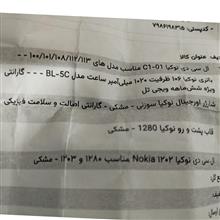 - کدپستی: ۷۹۸۶۱۹۸۳۱۵
عنوان کالا
ال سی دی نوکیا C1-01 مناسب مدل های ۱۰۰/۱۰۱/۱۰۸/۱۱۲/۱۱۳ - - -
باتری نوکیا ۱۰۶ ظرفیت ۱۰۲۰ میلی‌آمپر ساعت مدل BL-5C - - - گارانتی
ویژه شش‌ماهه ویجی تل
شارژر اورجینال نوکیا سوزنی - مشکی - گارانتی اصالت و سلامت فیزیکی
قاب پشت و رو نوکیا 1280 - مشکی
ال سی دی نوکیا Nokia ۱۲۰۲ مناسب ۱۲۸۰ و ۱۲۰۳ - مشکی